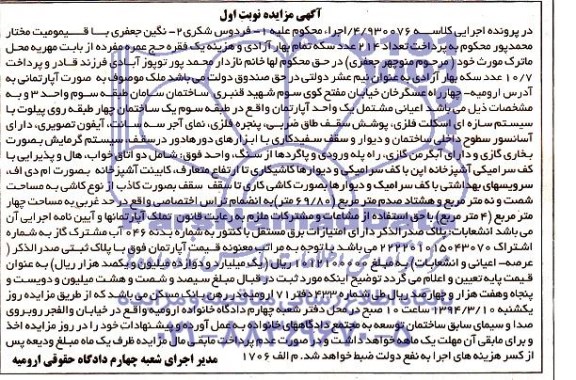 آگهی مزایده نوبت اول
در پرونده اجرایی کلاسه 4/930076/اجرا، محکوم علیه 1- فردوس شکری 2- نگین جعفری با قیمومیت مختار
محمدپور محکوم به پرداخت تعداد 214 عدد سکه تمام بهار آزادی و هزینه یک فقره حج عمره مفرده از بابت مهریه محل
ماترک مورث خود (مرحوم منوچهر جعفری) در حق محکوم لها خانم نازدار محمد پور توپوز آبادی فرزند قادر و پرداخت
10/7 عدد سکه بهار آزادی به عنوان نیم عشر دولتی در حق صندوق دولت می باشد ملک موصوف به صورت آپارتمانی به
آدرس ارومیه- چهارراه عسگرخان خیابان مفتح کوی سوم شهید قنبری ساختمان سامان طبقه سوم واحد 3 و به
مشخصات ذیل می باشد اعیانی مشتمل یک واحد آپارتمان واقع در طبقه سوم یک ساختمان چهار طبقه روی پیلوت با
سیستم سازه ای اسکلت فلزی، پوشش سقف طاق ضربی، پنجره فلزی، نمای آجر سه سانت، آیفون تصویری، دارای
آسانسور سطوح داخلی ساختمان و دیوار و سقف سفیدکاری با ابزارهای دورهادور در سقف، سیستم گرمایش بصورت
بخاری گازی و دارای آبگرمکن گازی، راه پله ورودی و پاگردها از سنگ، واحد فوق: شامل دو اتاق خواب، هال و پذیرایی با
کف سرامیکی آشپزخانه اپن با کف سرامیکی و دیوارها کاشیکاری تا ارتفاع متعارف، کابینت آشپزخانه بصورت ام دی اف،
سرویسهای بهداشتی با کف سرامیک و دیوارها بصورت کاشی کاری تا سقف سقف بصورت کاذب از نوع کاشی به مساحت
شصت و نه متر مربع و هشتاد صدم متر مربع (69/80 متر) به انضمام تراس اختصاصی واقع در حد غربی به مساحت چهار
متر مربع (4 متر مربع) با حق استفاده از مشاعات و مشترکات ملزم به رعایت قانون تملک آپارتمانها و آیین نامه اجرایی آن
می باشد انشعابات: پلاک صدرالذکر دارای امتیازات برق مستقل با کنتور به شماره بدنه 046 آب مشترک گاز به شماره
اشتراک 222201015043070 می باشد با توجه به مراتب معنونه قیمت آپارتمان فوق با پلاک ثبتی صدرالذکر (
عرصه- اعیانی و انشعابات) به مبلغ ریال (یک میلیارد و دوازده میلیون و یکصد هزار ریال) به عنوان
قیمت پایه تعیین و اعلام می گردد توضیح اینکه مورد ثبت در قبال مبلغ سیصد و شصت و هشت میلیون و دویست و
پنجاه وهفت هزار و چهارصد ریال طی شماره دفتر 171 ارومیه در رهن بانک مسکن می باشد که از طریق مزایده روز
یکشنبه 1394/3/10 ساعت 10 صبح در محل دفتر شعبه چهارم دادگاه خانواده ارومیه واقع در خیابان والفجر روبروی
صدا و سیمای سابق ساختمان توسعه به مجتمع دادگاههای خانواده به عمل آورده و پیشنهادات خود را در روز مزایده اخذ
و برای مابقی آن مهلت یک ماهه خواهد داشت و در صورت عدم پرداخت مابقی مال مزایده ظرف یک ماه مبلغ ودیعه پس
از کسر هزینه های اجرا به نفع دولت ضبط خواهد شد. م الف 1706
مدیر اجرای شعبه چهارم دادگاه حقوقی ارومیه